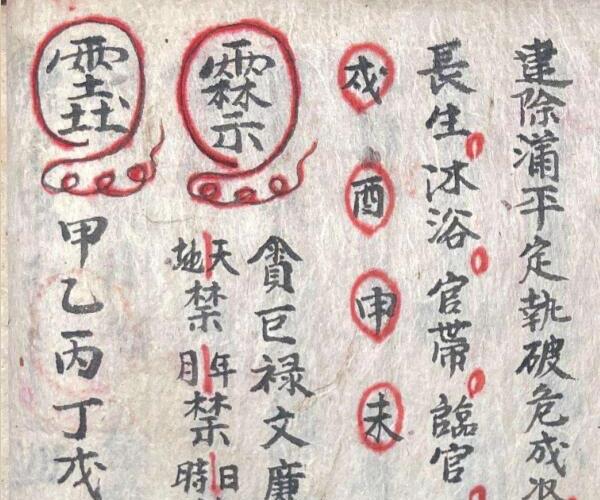 建除滿平定執破危成
長生沐浴官帶臨官
戌酉申未
貪巨禄文廉
天地禁年月禁日時
甲乙丙丁戊